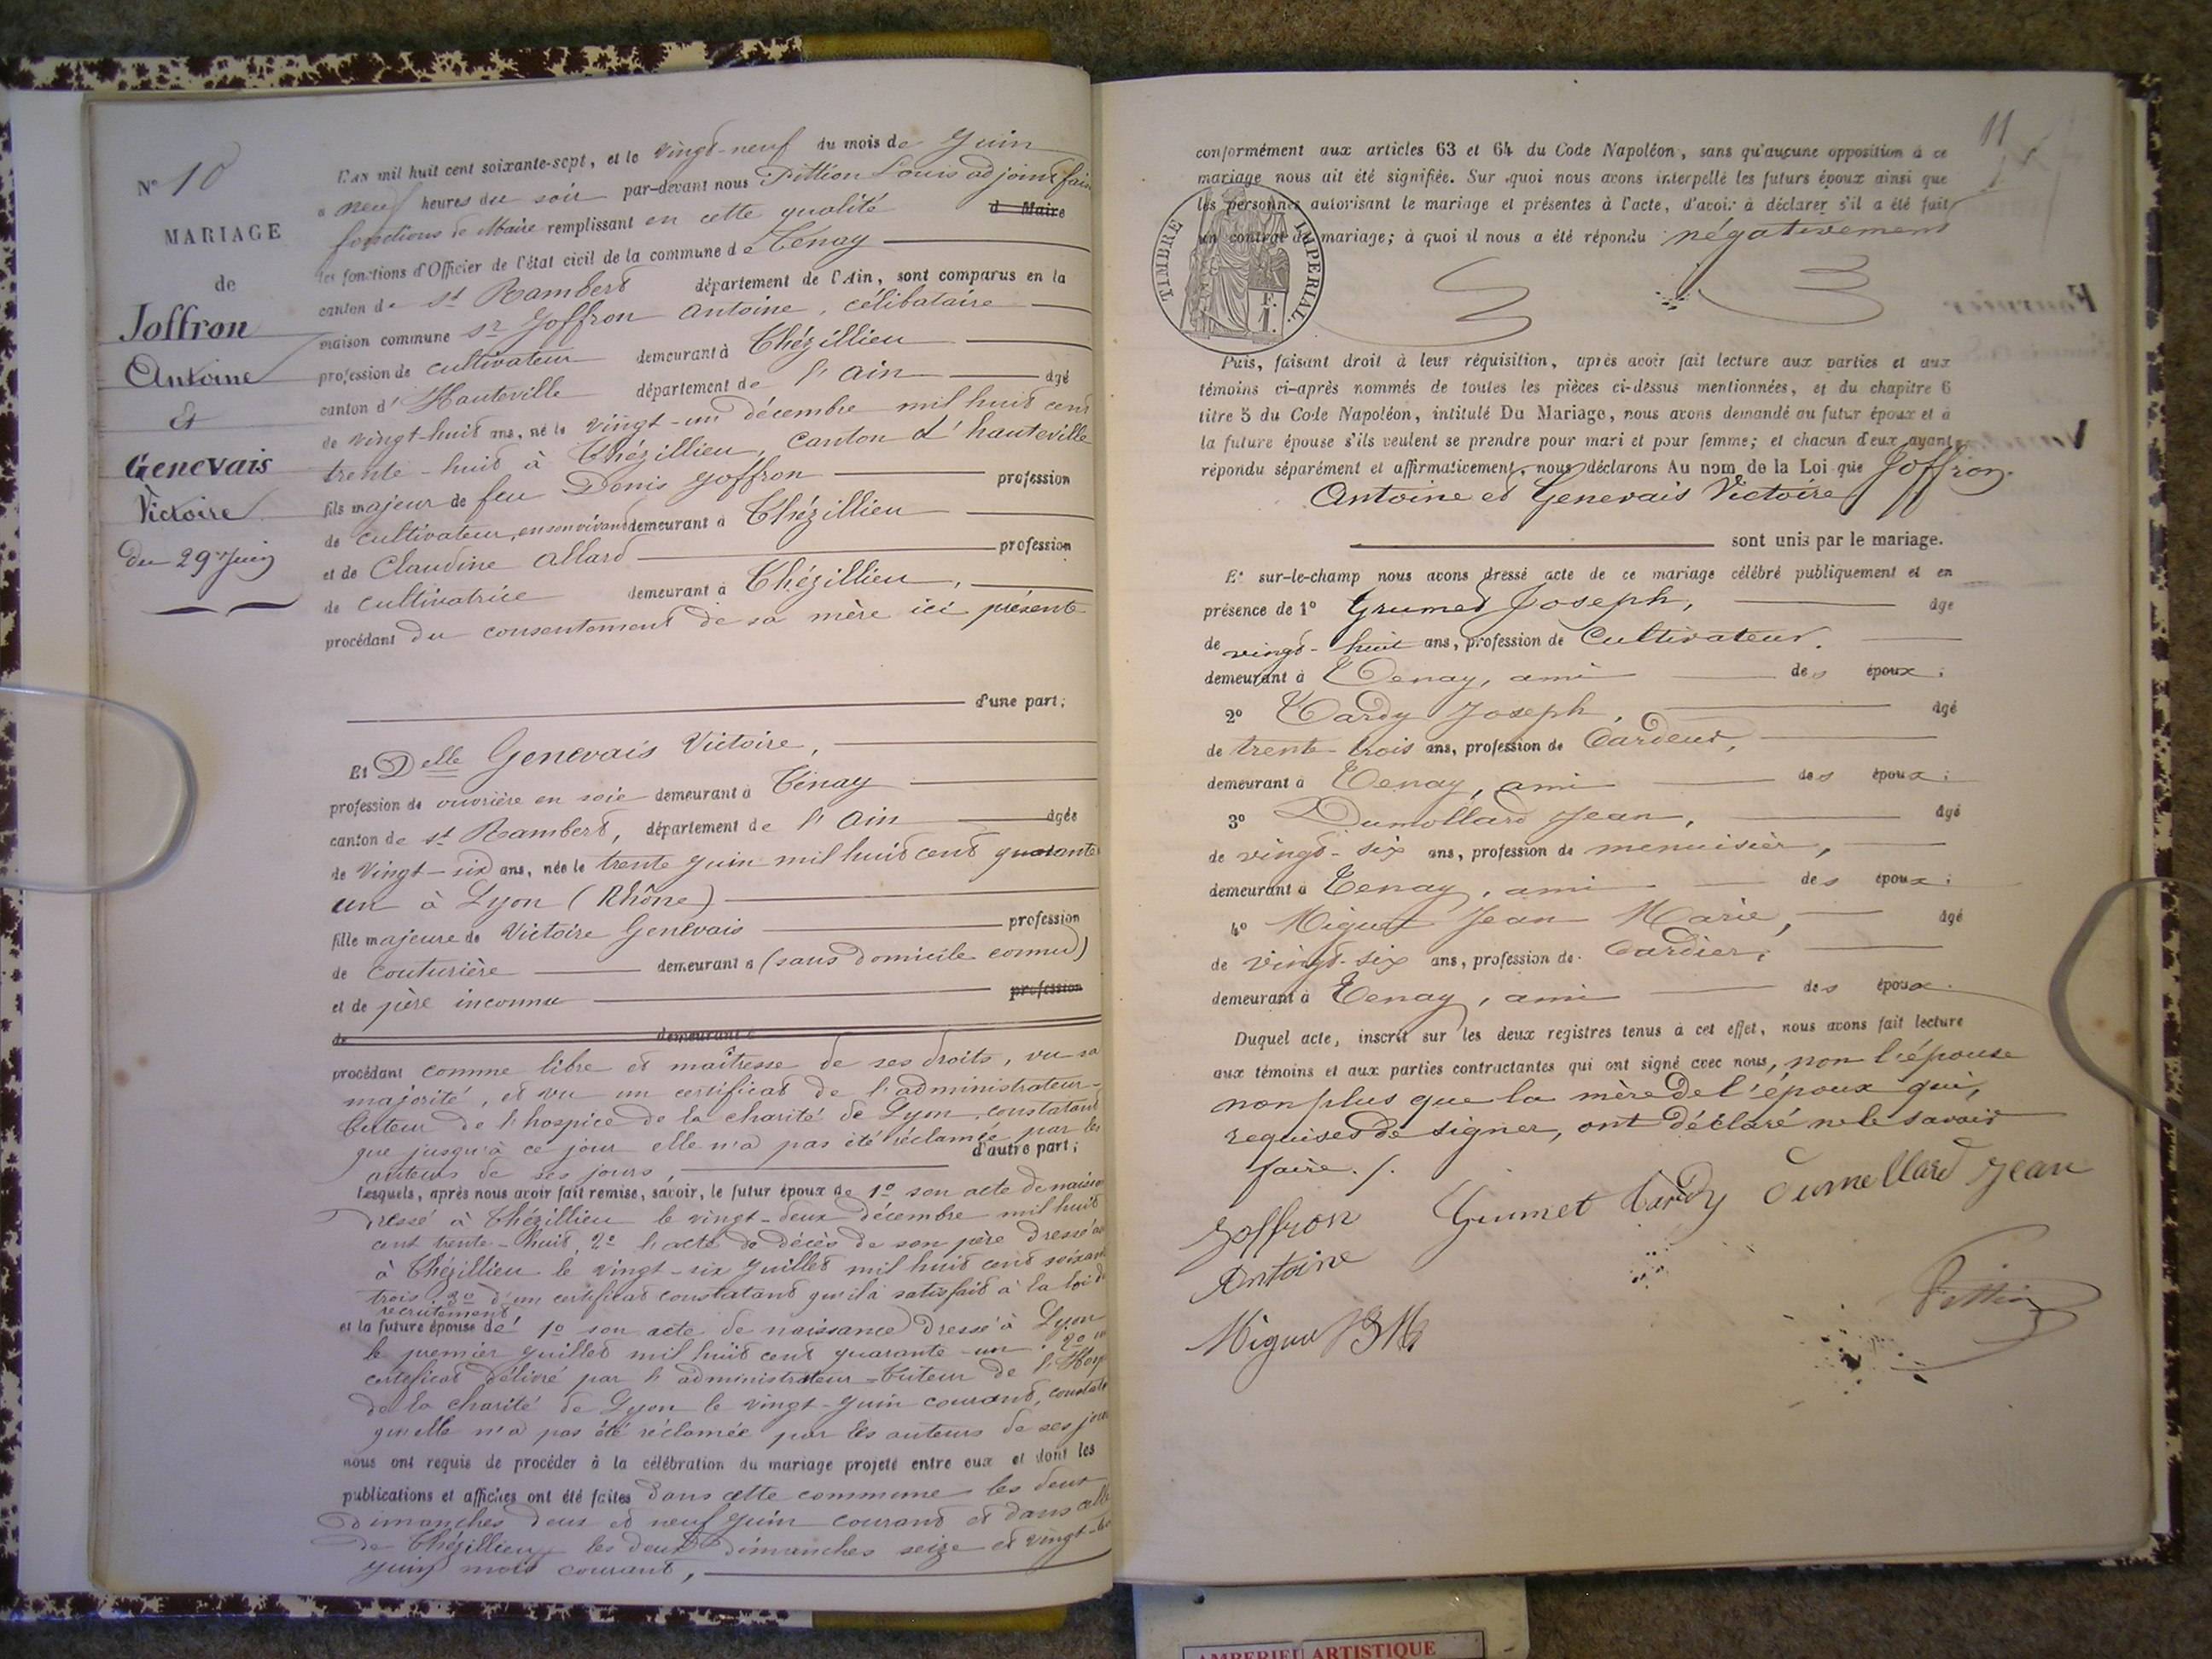 N° 10
MARIAGE
de
Joffron
Antoine
et
Genevais
Victoire
du 29 Juin
L'an mil huit cent soixante-sept, et le vingt-neuf du mois de Juin
à neuf heures du soir par-devant nous Pittion Louis adjoint fais
fonctions de Maire remplissant en cette qualité d Maire
les fonctions d'Officier de l'état civil de la commune de Tenay
canton de St Rambert département de l'Ain, sont comparus en la
maison commune Sr Joffron Antoine, célibataire
profession de cultivateur demeurant à Thézillieu
canton d' Hauteville département de l'Ain âgé
de vingt-huit ans, né le vingt-un décembre mil huit cent
trente-huit à Thézillieu, canton d'hauteville
fils majeur de feu Denis Joffron profession
de cultivateur, en son vivant demeurant à Thézillieu
et de Claudine Allard profession
de cultivatrice demeurant à Thézillieu,
procédant du consentement de sa mère ici présente
d'une part;
Et Delle Genevais Victoire,
profession de ouvrière en soie demeurant à Tenay
canton de St Rambert, département de l'Ain âgée
de vingt-six ans, née le trente Juin mil huit cent quarante
un à Lyon (Rhône)
fille majeure de Victoire Genevais profession
de couturière demeurant à (sans domicile connu)
et de père inconnu profession
de demeurant à
procédant comme libre et maîtresse de ses droits, vu sa
majorité, et vu un certificat de l'administrateur-
tuteur de l'hospice de la charité de Lyon, constatant
que jusqu'à ce jour elle n'a pas été réclamée par les
auteurs de ses jours, d'autre part;
Lesquels, après nous avoir fait remise, savoir, le futur époux de 1° son acte de naissan
dressé à Thézillieu le vingt-deux décembre mil huit
cent trente-huit, 2° l'acte de décès de son père dressé
à Thézillieu le vingt-six Juillet mil huit cent soixan
trois 3° d'un certificat constatant qu'il a satisfait à la loi de
recrutement
et la future épouse de 1° son acte de naissance dressé à Lyon
le premier Juillet mil huit cent quarante-un. 2° un
certificat délivré par l'administrateur-tuteur de l'Hosp
de la charité de Lyon le vingt-Juin courant, constata
qu'elle n'a pas été réclamée par les auteurs de ses jou
nous ont requis de procéder à la célébration du mariage projeté entre eux et dont les
publications et affiches ont été faites dans cette commune les deux
dimanches deux et neuf Juin courant et dans celle
de Thézillieu les deux dimanches seize et vingt-
Juin mois courant,
11
conformément aux articles 63 et 64 du Code Napoléon, sans qu'aucune opposition à ce
mariage nous ait été signifiée. Sur quoi nous avons interpellé les futurs époux ainsi que
les personnes autorisant le mariage et présentes à l'acte, d'avoir à déclarer s'il a été fait
un contrat de mariage; à quoi il nous a été répondu négativement
TIMBRE IMPERIAL.
Puis, faisant droit à leur réquisition, après avoir fait lecture aux parties et aux
témoins ci-après nommés de toutes les pièces ci-dessus mentionnées, et du chapitre 6
titre 5 du Code Napoléon, intitulé Du Mariage, nous avons demandé au futur époux et à
la future épouse s'ils veulent se prendre pour mari et pour femme; et chacun d'eux ayant
répondu séparément et affirmativement, nous déclarons Au nom de la Loi que Joffron
Antoine et Genevais Victoire
sont unis par le mariage.
Et sur-le-champ nous avons dressé acte de ce mariage célébré publiquement et en
présence de 1° Grumet Joseph, âgé
de vingt-huit ans, profession de Cultivateur.
demeurant à Tenay, ami des époux;
2° Tardy Joseph, âgé
de trente-trois ans, profession de Cardeur,
demeurant à Tenay, ami des époux;
3° Dumollard Jean, âgé
de vingt-six ans, profession de menuisier,
demeurant à Tenay, ami des époux;
4° Miguet Jean Marie, âgé
de vingt-six ans, profession de Cardier,
demeurant à Tenay, ami des époux.
Duquel acte, inscrit sur les deux registres tenus à cet effet, nous avons fait lecture
aux témoins et aux parties contractantes qui ont signé avec nous, non l'épouse
non plus que la mère de l'époux qui,
requises de signer, ont déclaré ne le savoir
faire./.
Joffron Grumet Tardy Dumollard Jean
Antoine
Pittion
Miguet JM
AMBERIEU ARTISTIQUE